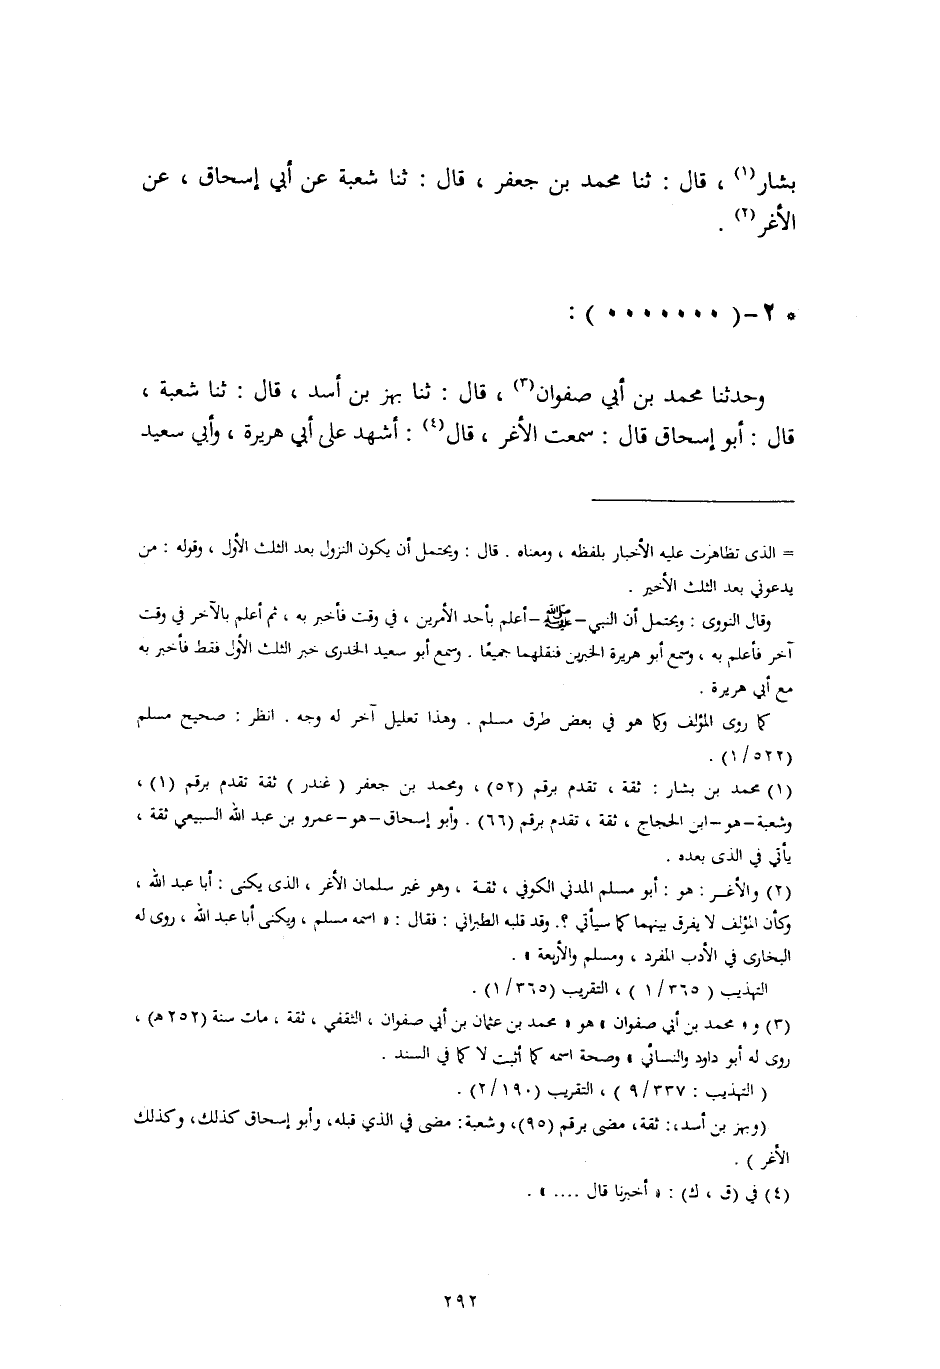 بشار(١) ، قال : ثنا محمد بن جعفر ، قال : ثنا شعبة عن أبي إسحاق ، عن
الأغر(٢) .
* ٢-( ٠٠٠٠٠٠٠ ) :
وحدثنا محمد بن أبي صفوان(٣) ، قال : ثنا بهز بن أسد ، قال : ثنا شعبة ،
قال : أبو إسحاق قال : سمعت الأغر ، قال(٤) : أشهد على أبي هريرة ، وأبي سعيد
= الذى تظاهرت عليه الأخبار بلفظه ، ومعناه . قال : ويحتمل أن يكون النزول بعد الثلث الأول ، وقوله : من
يدعوني بعد الثلث الأخير .
وقال النووى : ويحتمل أن النبي -ﷺ- أعلم بأحد الأمرين ، في وقت فأخبر به ، ثم أعلم بالآخر في وقت
آخر فأعلم به ، وسمع أبو هريرة الخبرين فنقلهما جميعًا . وسمع أبو سعيد الخدرى خبر الثلث الأول فقط فأخبر به
مع أبي هريرة .
كما روى المؤلف وكما هو في بعض طرق مسلم . وهذا تعليل آخر له وجه . انظر : صحيح مسلم
(١/٥٢٢) .
(١) محمد بن بشار : ثقة ، تقدم برقم (٥٢) ، ومحمد بن جعفر ( غندر ) ثقة تقدم برقم (١) ،
وشعبة-هو-ابن الحجاج ، ثقة ، تقدم برقم (٦٦) . وأبو إسحاق-هو-عمرو بن عبد الله السبيعي ثقة ،
يأتي في الذى بعده .
(٢) والأغـر : هو : أبو مسلم المدني الكوفي ، ثقـة ، وهو غير سلمان الأغر ، الذى يكنى : أبا عبد الله ،
وكأن المؤلف لا يفرق بينهما كما سيأتي ؟. وقد قلبه الطبراني : فقال : « اسمه مسلم ، ويكنى أبا عبد الله ، روى له
البخارى في الأدب المفرد ، ومسلم والأربعة » .
التهذيب ( ١/٣٦٥ ) ، التقريب (١/٣٦٥) .
(٣) و « محمد بن أبي صفوان » هو « محمد بن عثمان بن أبي صفوان ، الثقفي ، ثقة ، مات سنة (٢٥٢ هـ) ،
روى له أبو داود والنسائي » وصحة اسمه كما أثبت لا كما في السند .
( التهذيب : ٩/٣٣٧ ) ، التقريب (٢/١٩٠) .
(وبهز بن أسد،: ثقة، مضى برقم (٩٥)، وشعبة: مضى في الذي قبله، وأبو إسحاق كذلك، وكذلك
الأغر ) .
(٤) في (ق ، ك) : « أخبرنا قال .... » .
٢٩٢